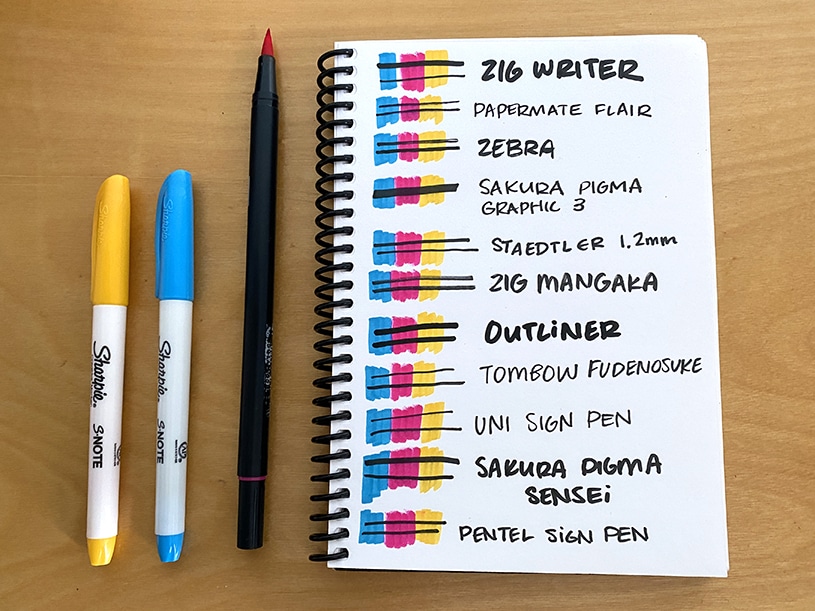 Sharpie
Sharpie®
S·NOTE
Sharpie
Sharpie®
S·NOTE
ZIG WRITER
PAPERMATE FLAIR
ZEBRA
SAKURA PIGMA
GRAPHIC 3
STAEDTLER 1.2mm
ZIG MANGAKA
OUTLINER
TOMBOW FUDENOSUKE
UNI SIGN PEN
SAKURA PIGMA
SENSEI
PENTEL SIGN PEN